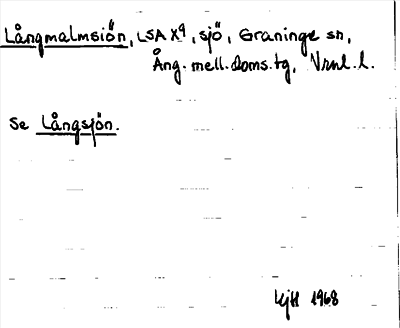 Långmalmsjön, LSA X9, sjö, Graninge sn,
Ång. mell. doms. tg, Vrnl. l.
se Långsjön.
LejH 1968